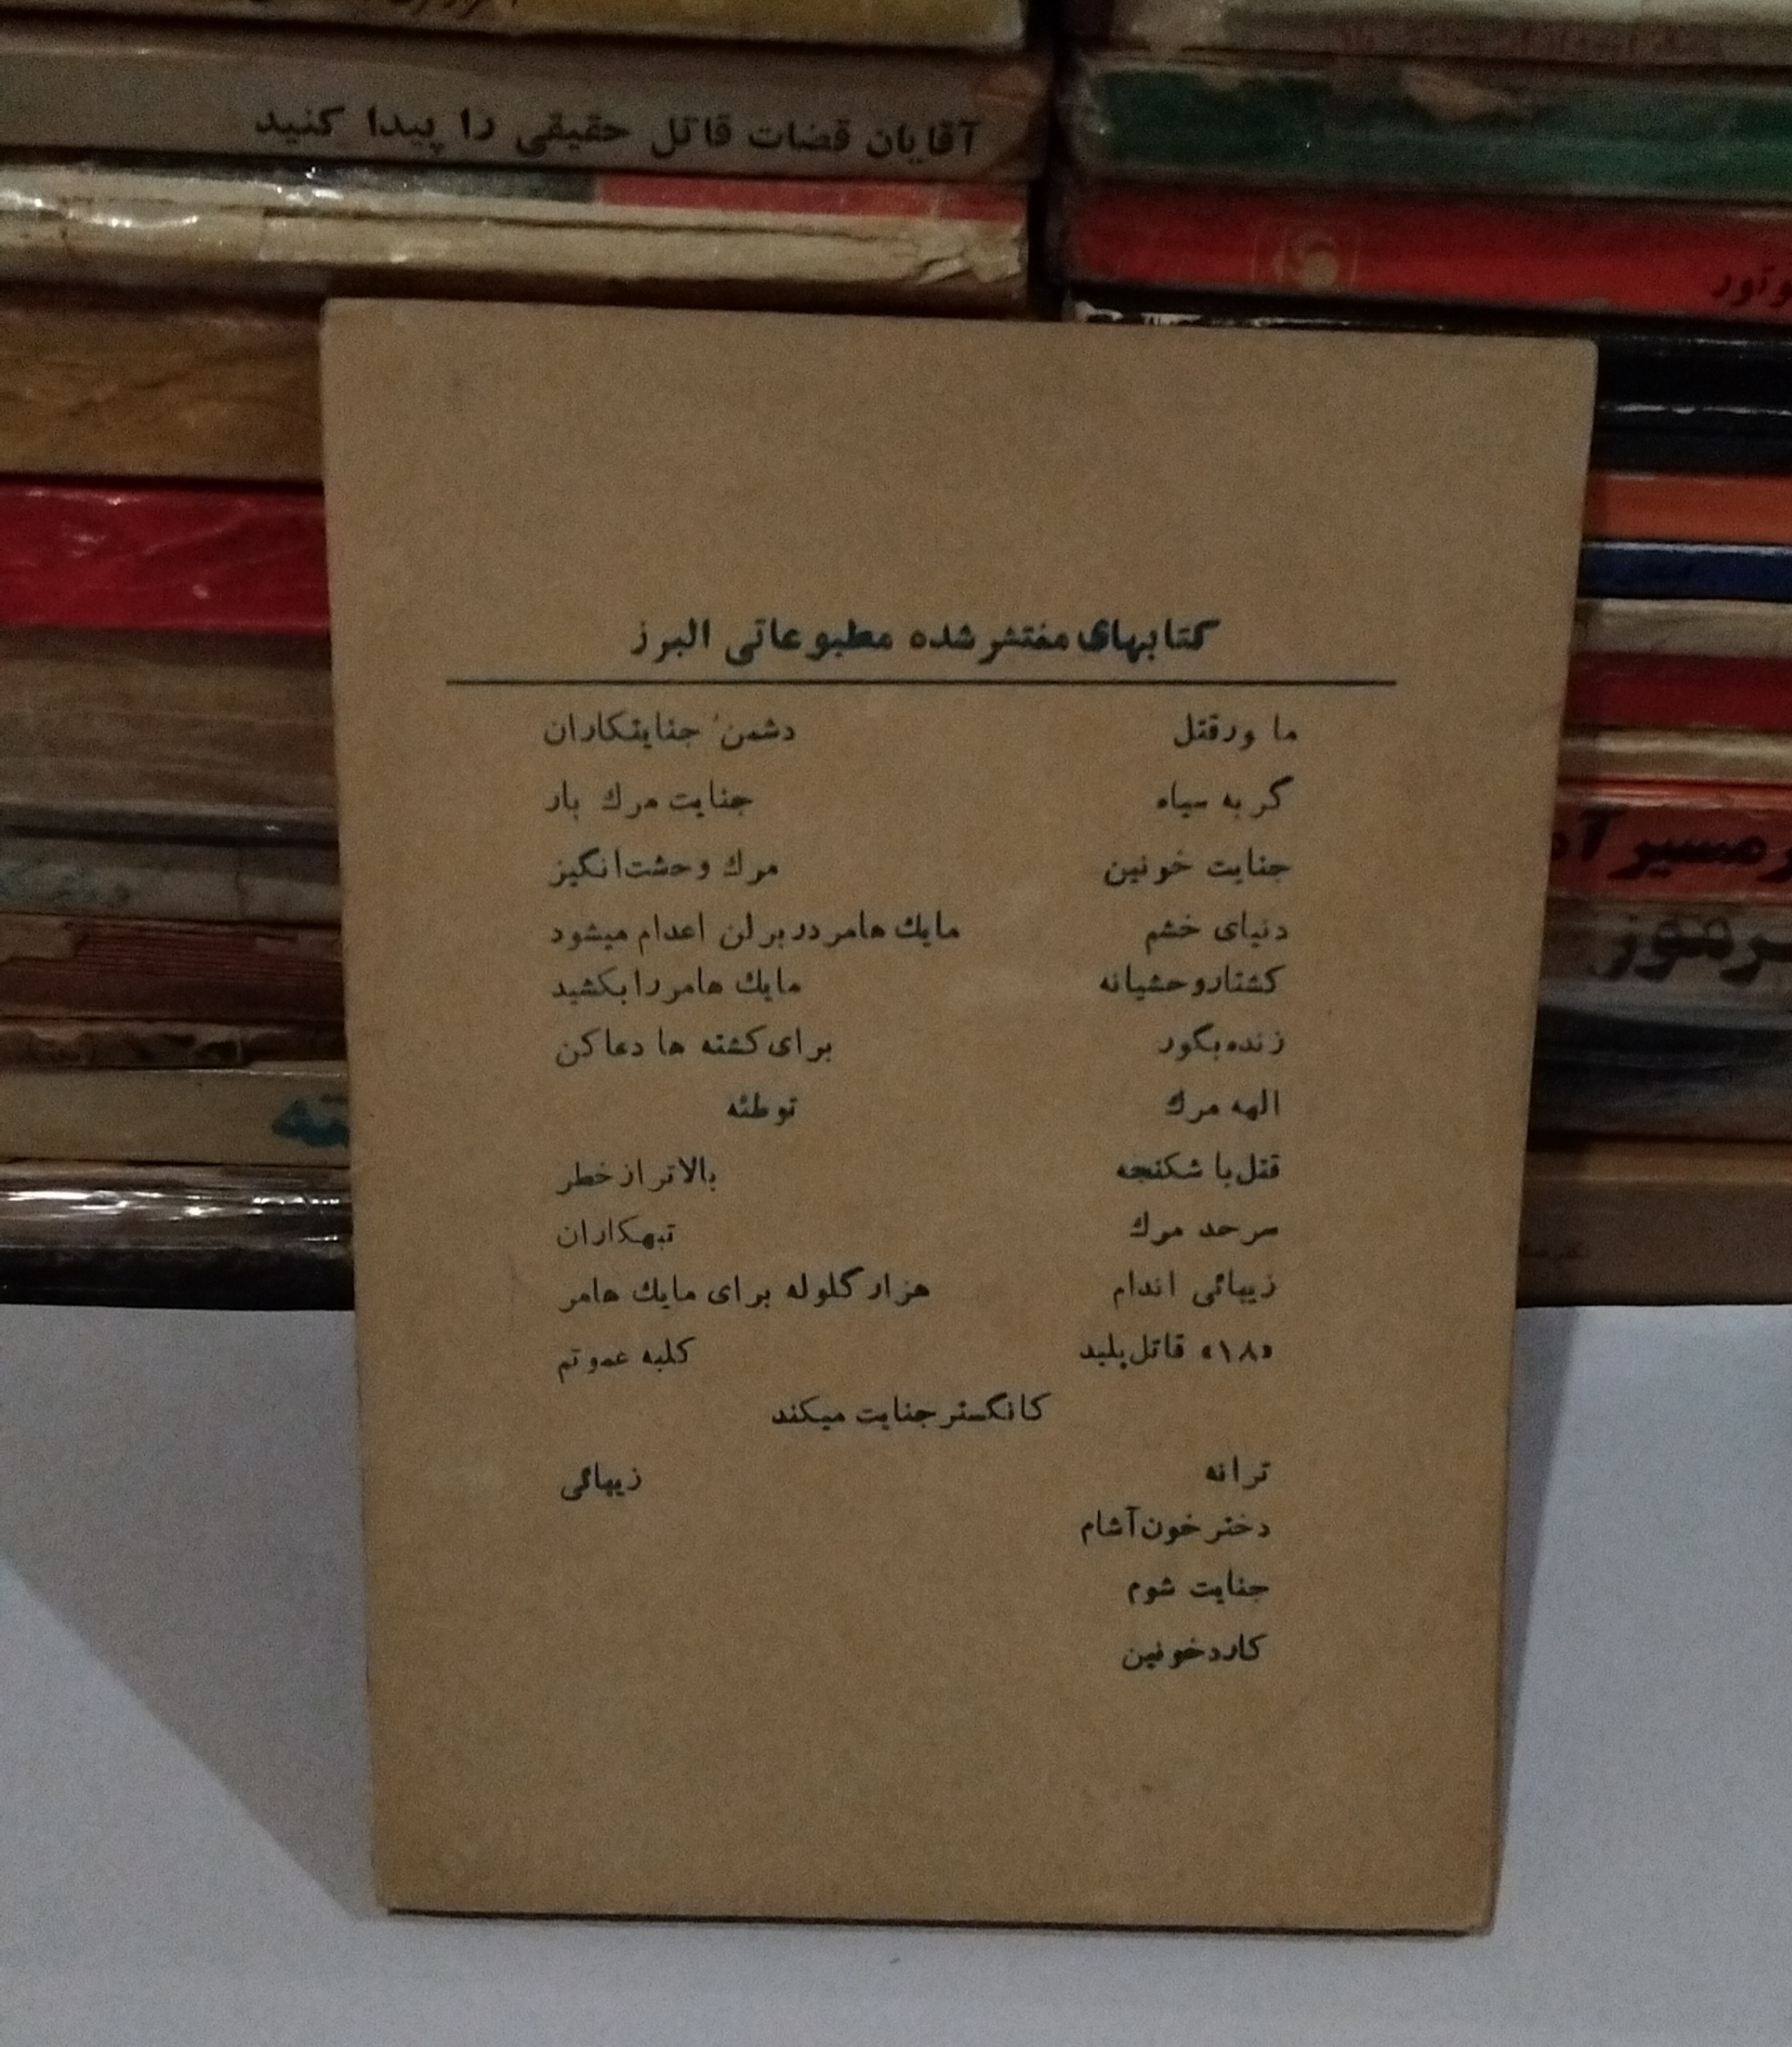 آقایان قضات قاتل حقیقی را پیدا کنید
کتابهای منتشر شده مطبوعاتی البرز
ما ور قتل
دشمن جنایتکاران
گربه سیاه
جنایت مرك بار
جنایت خونین
مرك وحشت‌انگیز
دنیای خشم
مایك هامر در برلن اعدام میشود
کشتار وحشیانه
مایك هامر را بکشید
زنده بگور
برای کشته ها دعا کن
الهه مرك
توطئه
قتل با شکنجه
بالاتر از خطر
سرحد مرك
تبهکاران
زیبائی اندام
هزار گلوله برای مایك هامر
«۱۸» قاتل پلید
کلبه عمو تم
کانگستر جنایت میکند
ترانه
زیبائی
دختر خون آشام
جنایت شوم
کارد خونین